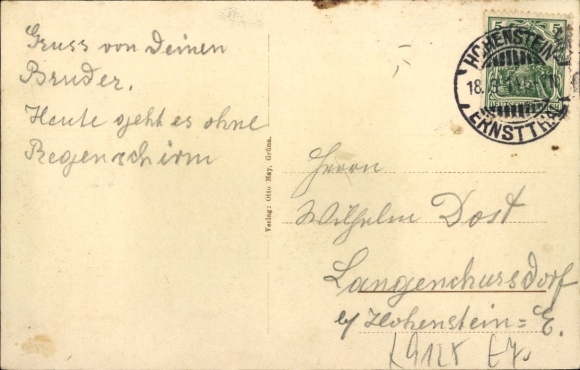 Gruss von Deinen
Bruder.
Heute geht es ohne
Regenschirm
Verlag: Otto May, Grüna.
5 5
HOHENSTEIN
18.
ERNSTTHAL
Herrn
Wilhelm Dost
Langenchursdorf
b/ Hohenstein=E.